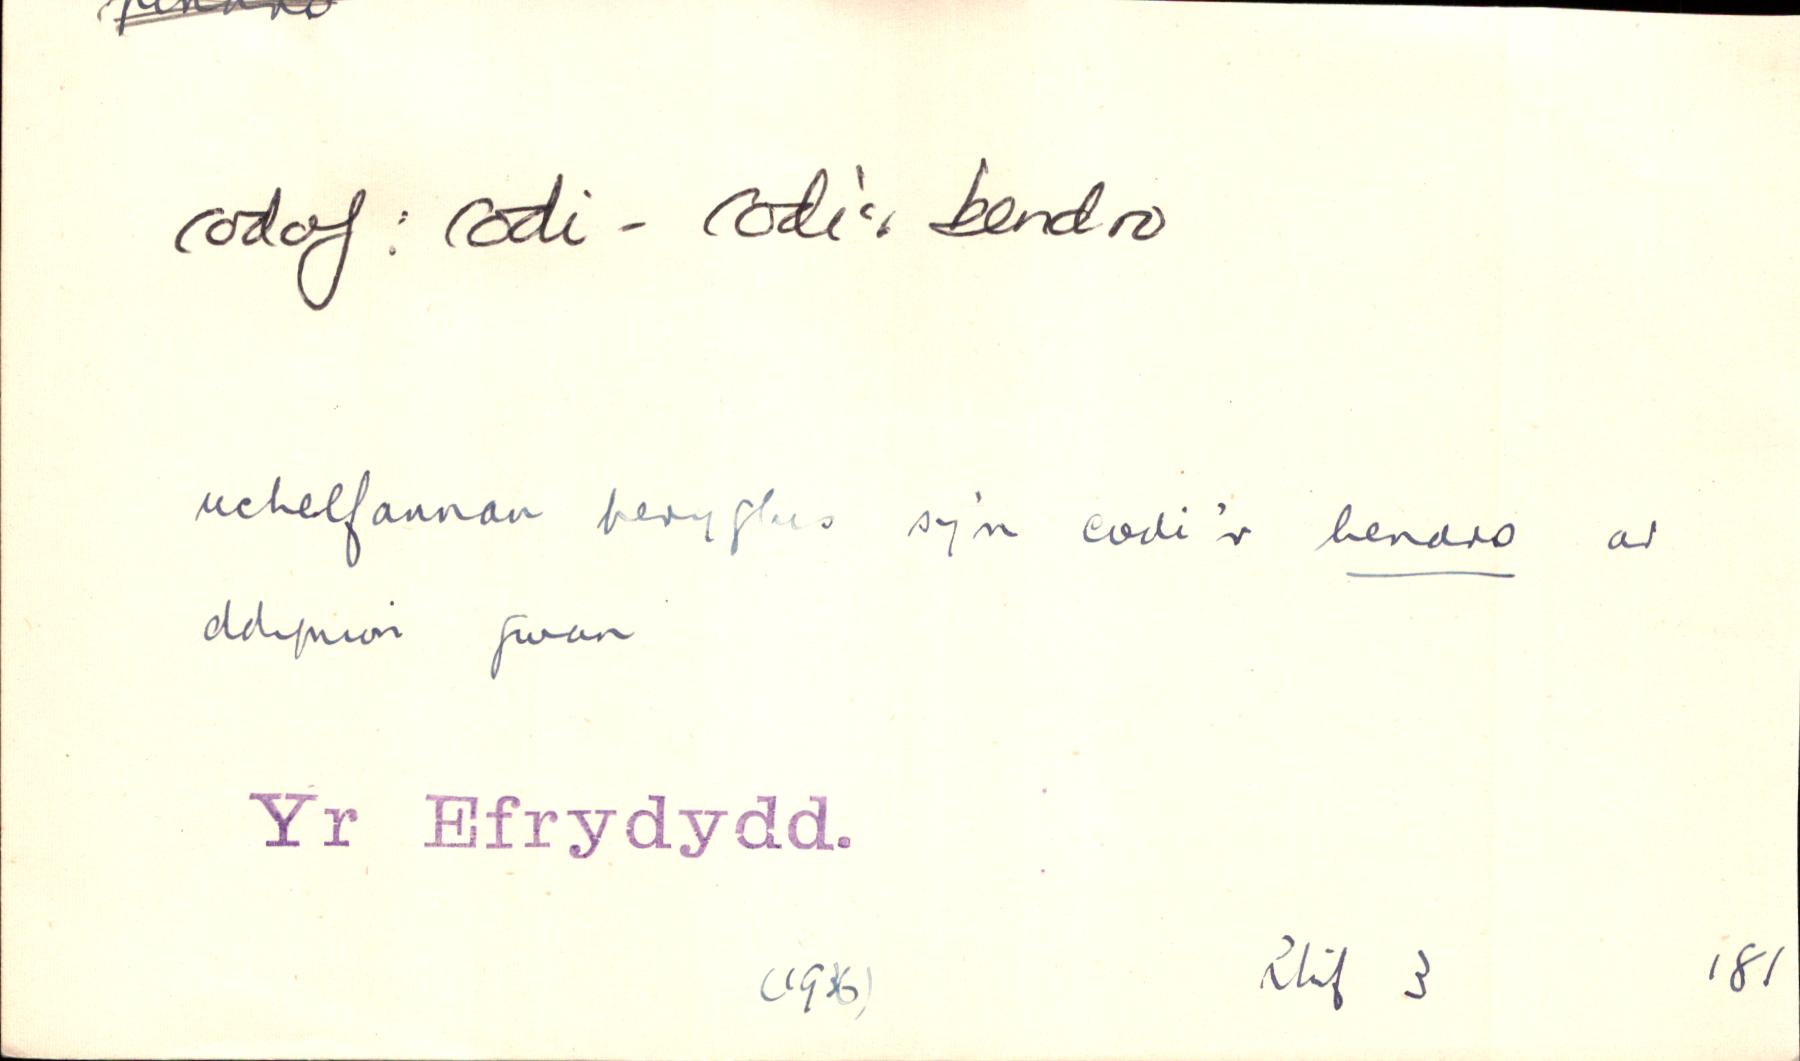 codaf: codi - codi'r bendro
uchelfannau peryglus sy'n codi'r bendro ar
ddynion gwan
Yr Efrydydd.
Rhif 3 181